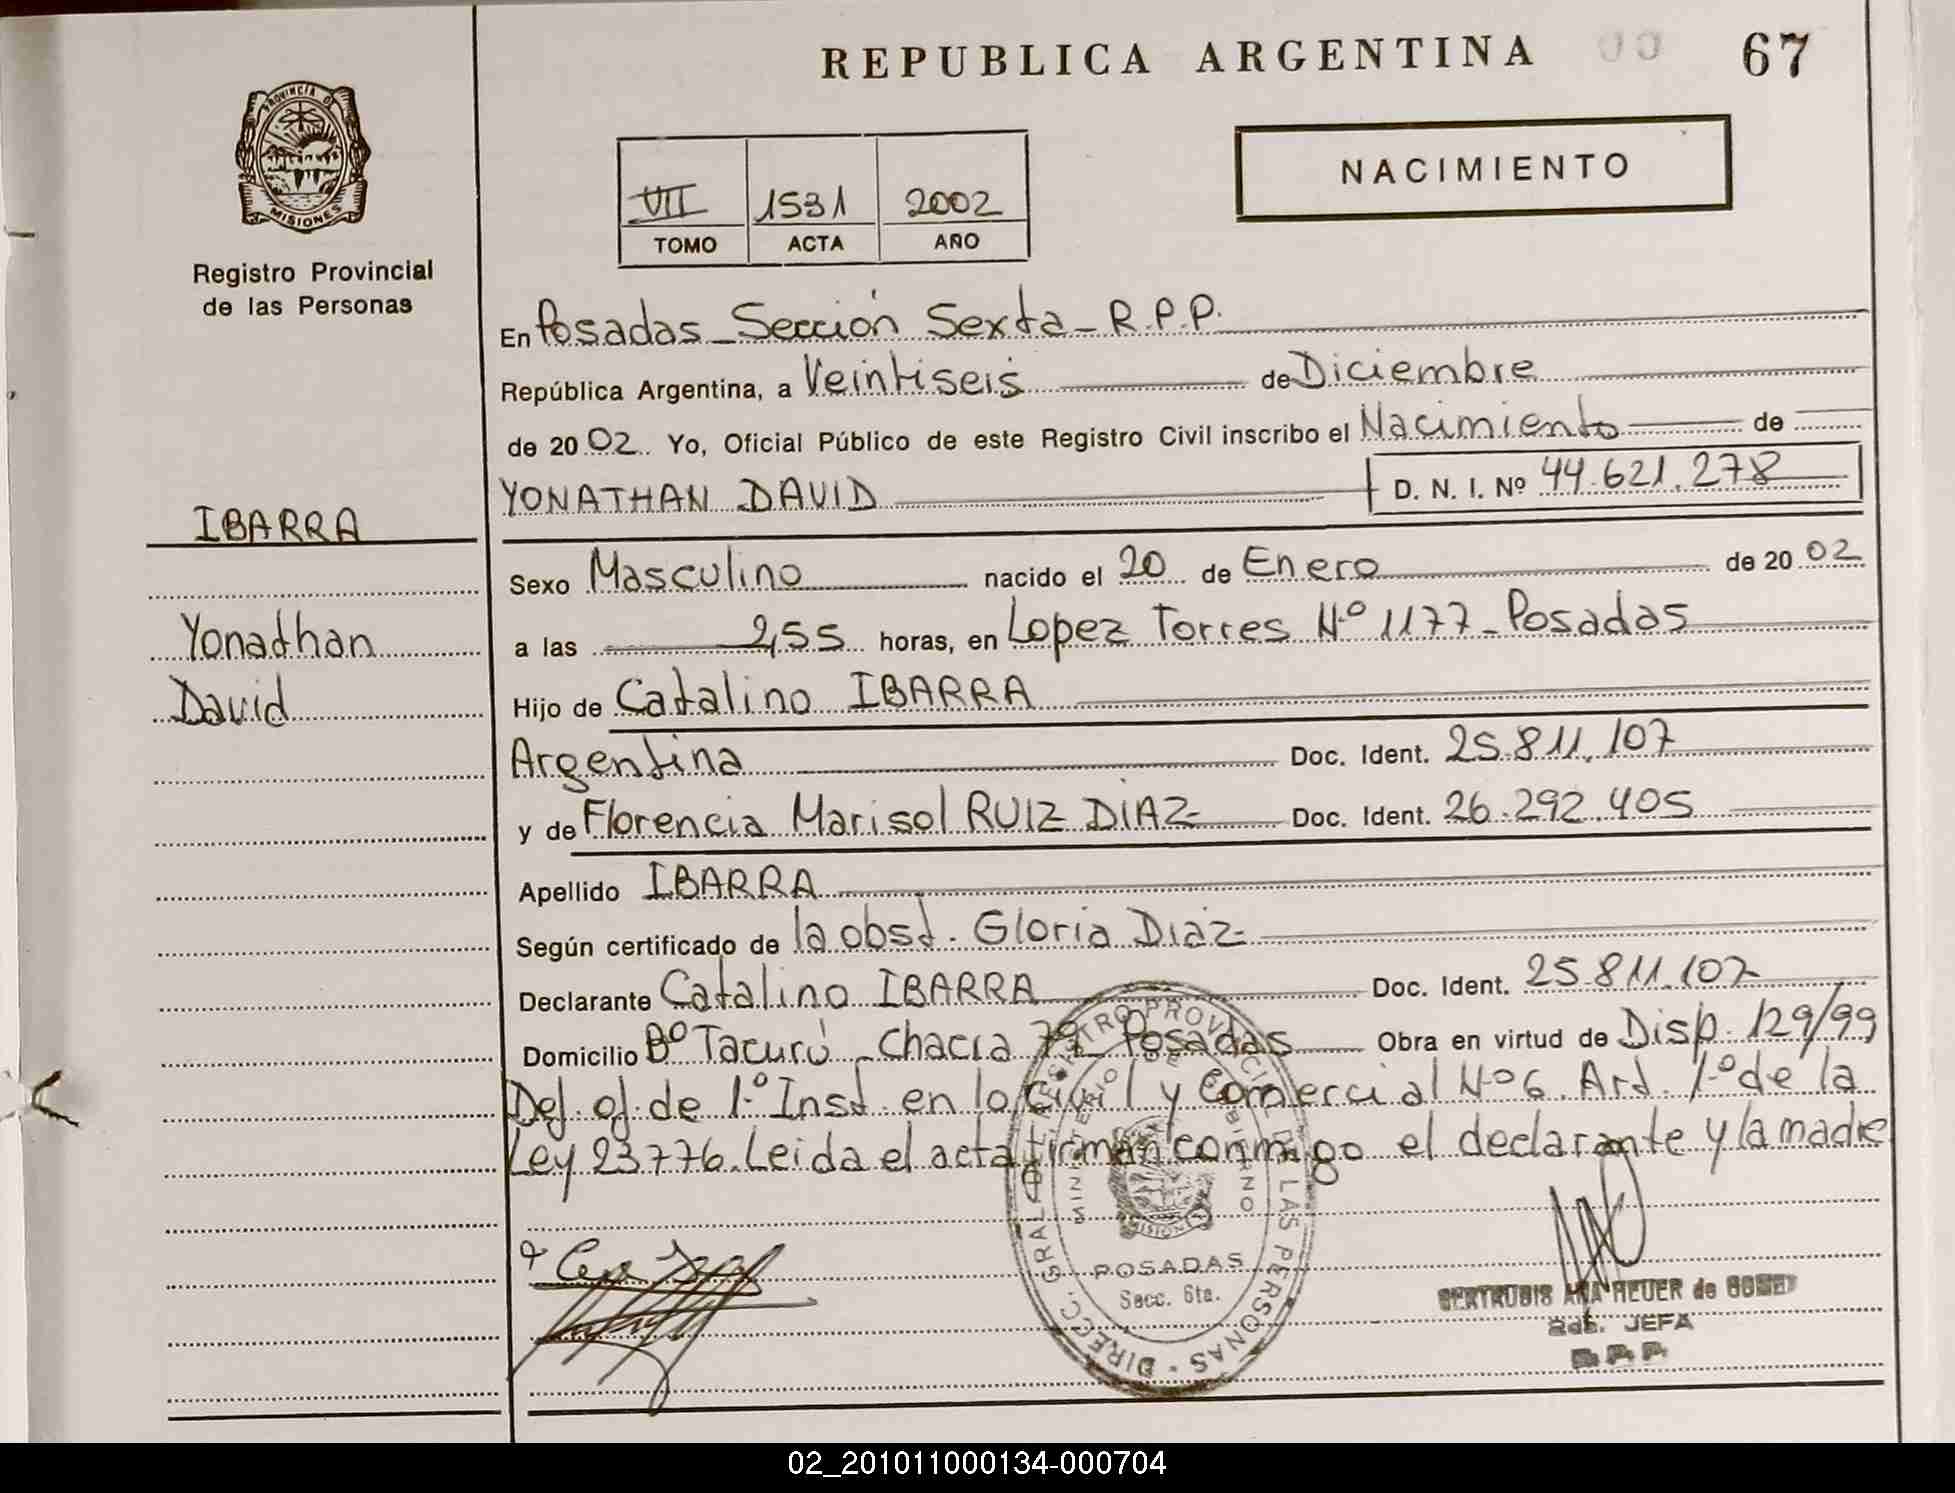 REPUBLICA ARGENTINA 00 67
PROVINCIA DE
MISIONES
Registro Provincial
de las Personas
NACIMIENTO
VII 1531 2002
TOMO ACTA AÑO
En Posadas - Sección Sexta - R.P.P.
República Argentina, a Veintiseis de Diciembre
de 2002. Yo, Oficial Público de este Registro Civil inscribo el Nacimiento de
YONATHAN DAVID D. N. I. Nº 44.621.278
IBARRA
Yonathan
David
Sexo Masculino nacido el 20 de Enero de 2002
a las 2,55 horas, en Lopez Torres Nº 1177 - Posadas
Hijo de Catalino IBARRA
Argentina Doc. Ident. 25.811.107
y de Florencia Marisol RUIZ DIAZ Doc. Ident. 26.292.405
Apellido IBARRA
Según certificado de la obst. Gloria Diaz
Declarante Catalino IBARRA Doc. Ident. 25.811.107
Domicilio Bº Tacurú - Chacra 79 - Posadas Obra en virtud de Disp. 129/99
Def. of. de 1.º Inst. en lo Civil y Comercial Nº 6. Art. 1.º de la
Ley 23776. Leida el acta firman conmigo el declarante y la madre
DIRECC. GRAL. DEL REGISTRO PROVINCIAL DE LAS PERSONAS
MINISTERIO DE GOBIERNO
MISIONES
POSADAS
Secc. 6ta.
GERTRUDIS ANA HEUER de GOMEZ
JEFA
R.P.P.
02_201011000134-000704